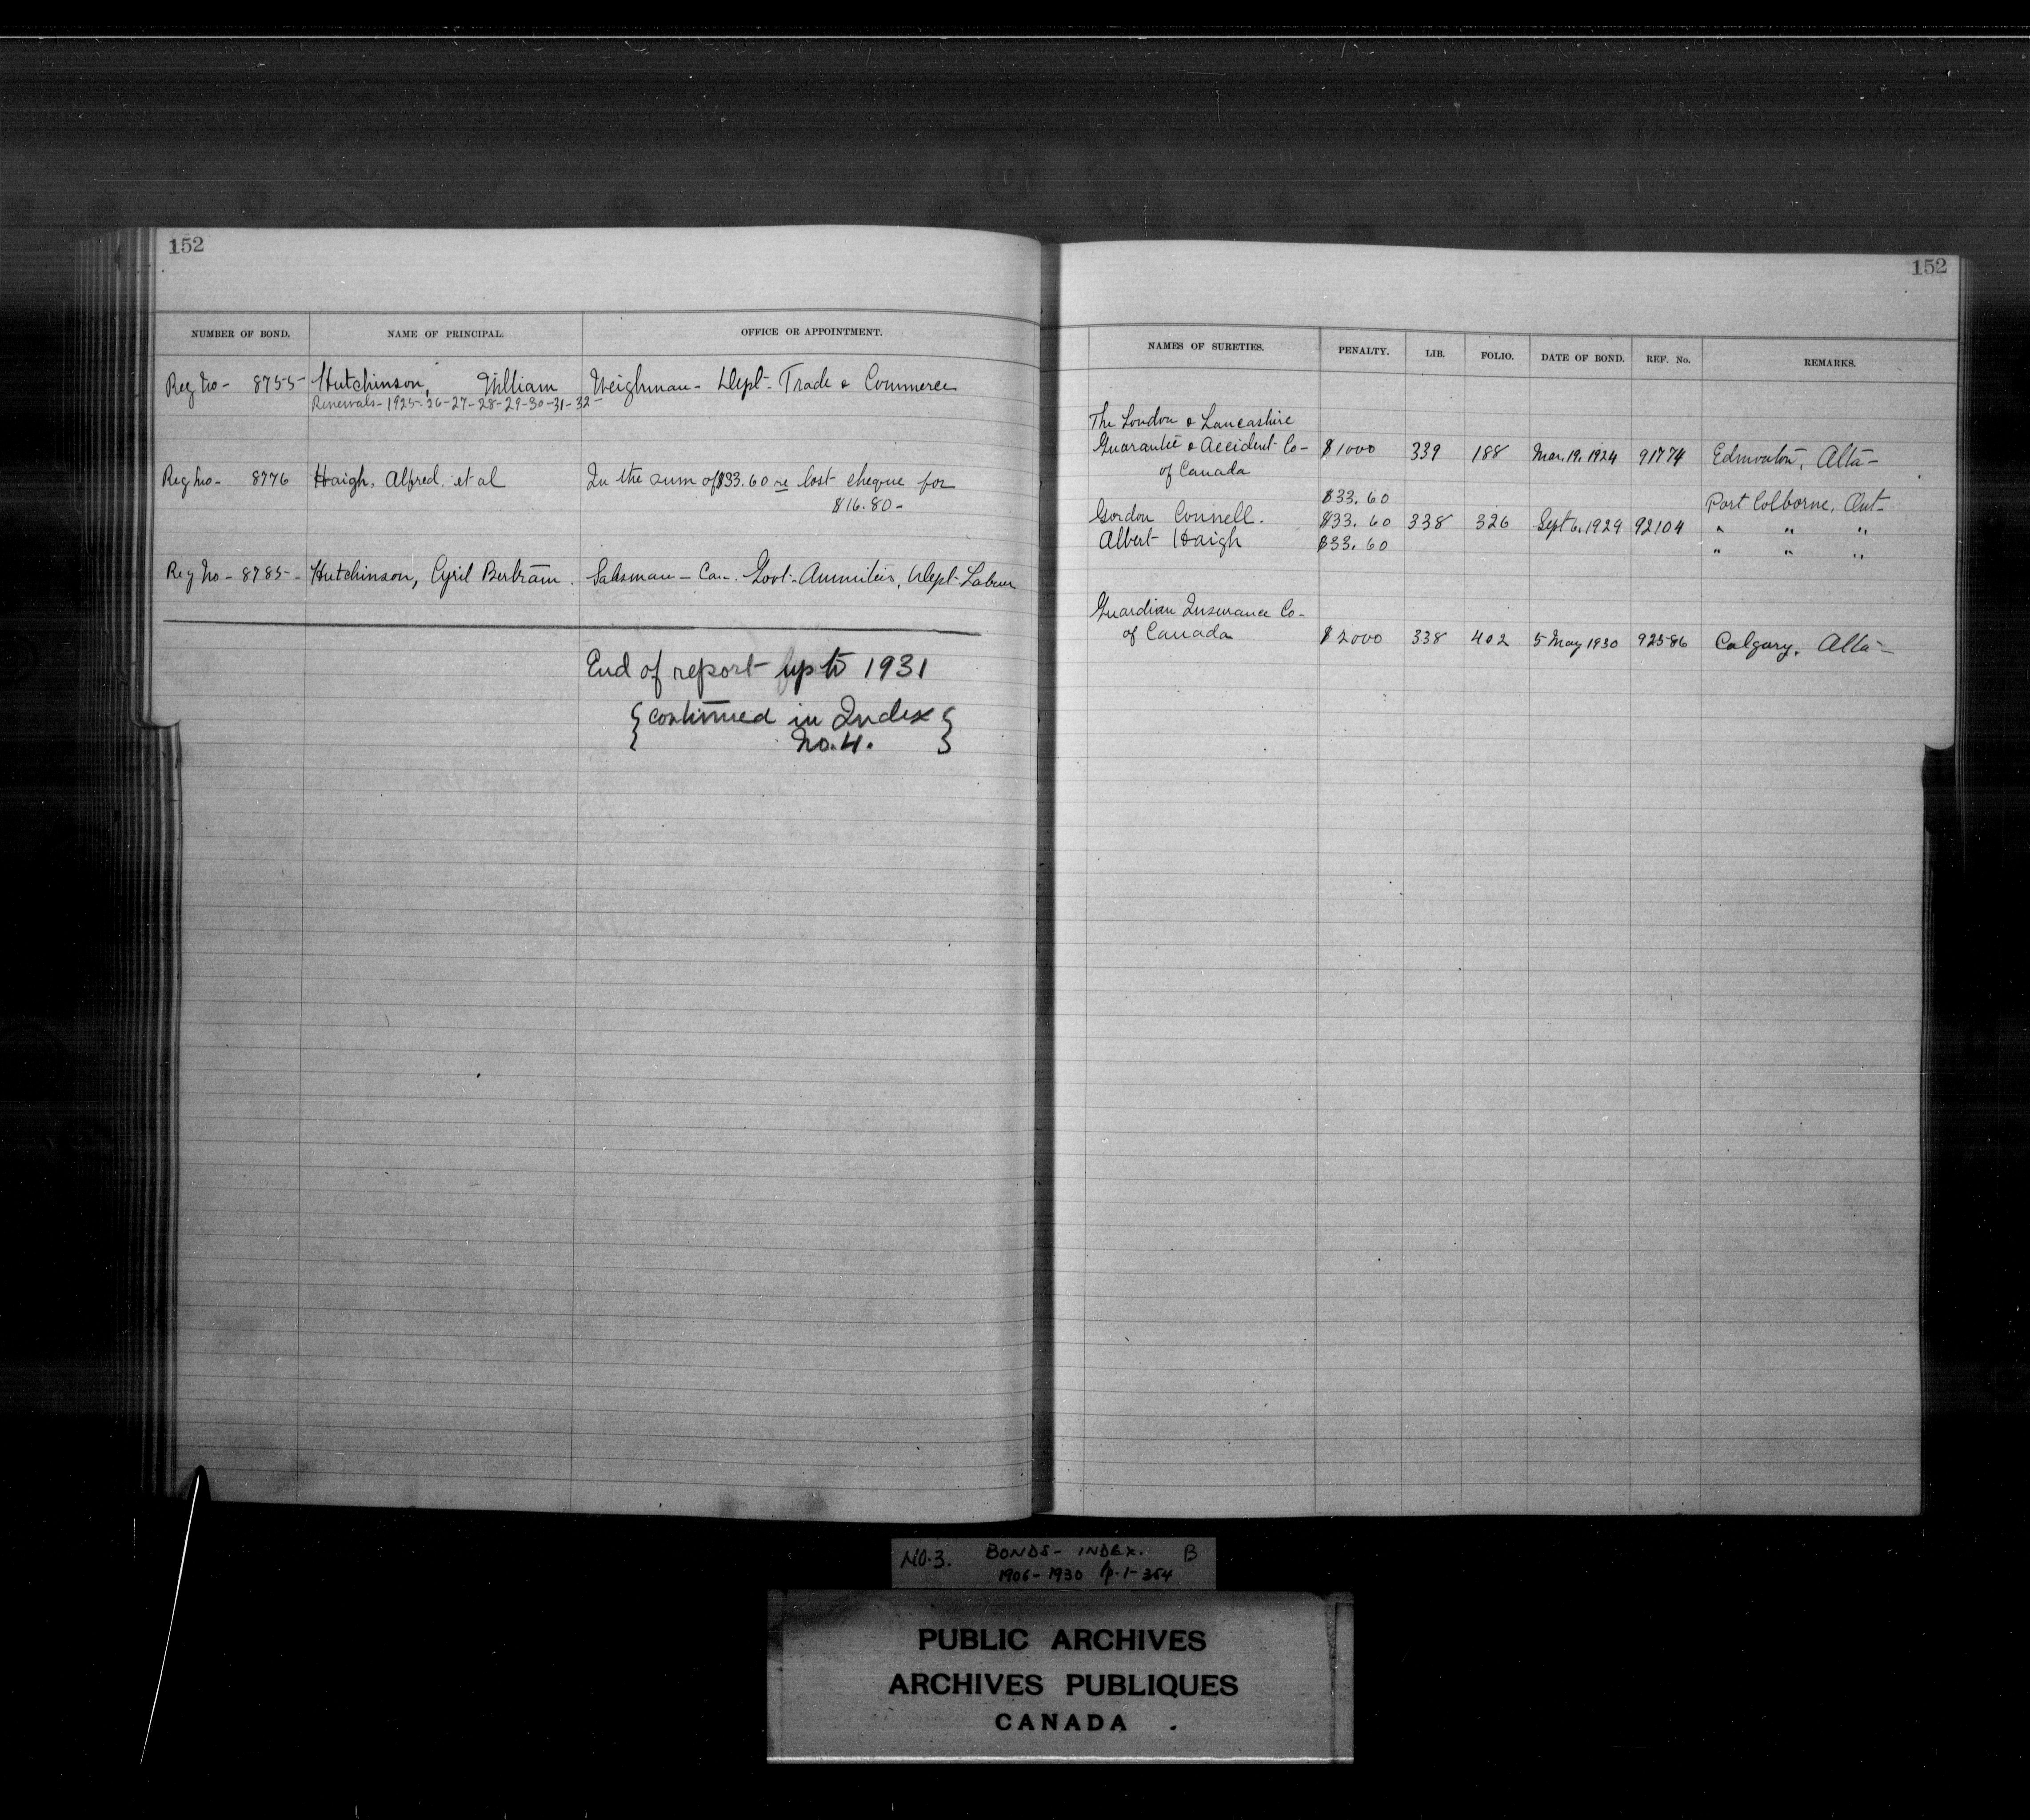 152
NUMBER OF BOND. NAME OF PRINCIPAL. OFFICE OR APPOINTMENT.
Reg No - 8755 - Hutchinson, William Weighman - Dept - Trade & Commerce
Renewals - 1925 - 26 - 27 - 28 - 29 - 30 - 31 - 32 -
Reg No - 8776 Haigh, Alfred, et al In the sum of $33.60 re lost cheque for
$16.80 -
Reg No - 8785 - Hutchinson, Cyril Bertram. Salesman - Can. Govt - Annuities, Dept - Labour
End of report up to 1931
{ continued in Index }
No. 4.
152
NAMES OF SURETIES. PENALTY. LIB. FOLIO. DATE OF BOND. REF. No. REMARKS.
The London & Lancashire
Guarantee & Accident Co - $1000 339 188 Mar. 19. 1924 91774 Edmonton, Alta -
of Canada
$33.60 Port Colborne, Ont -
Gordon Connell. $33.60 338 326 Sept 6. 1929 92104 " " "
Albert Haigh $33.60 " " "
Guardian Insurance Co -
of Canada $2000 338 402 5 May 1930 92586 Calgary, Alta -
NO. 3. BONDS - INDEX. B
1906 - 1930 p. 1 - 354
PUBLIC ARCHIVES
ARCHIVES PUBLIQUES
CANADA